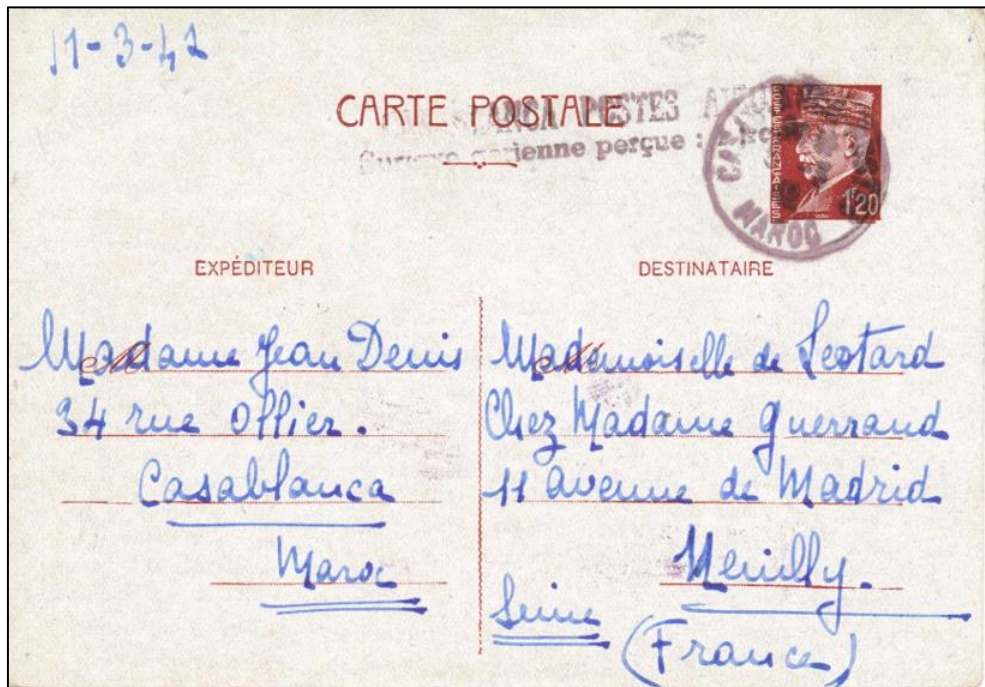 11-3-42
CARTE POSTALE
POSTES
aérienne perçue :
CA
MAROC
POSTES FRANÇAISES
1F20
EXPÉDITEUR
Madame Jean Denis
34 rue Offier.
Casablanca
Maroc
DESTINATAIRE
Mademoiselle de Leotard
Chez Madame Guerrand
11 avenue de Madrid
Neuilly.
Seine
(France)